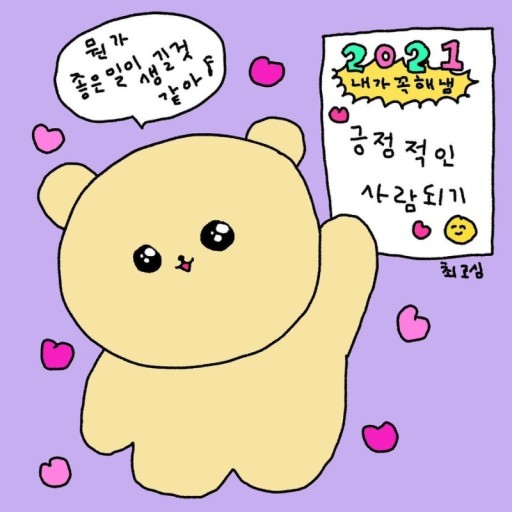 뭔가
좋은일이 생길것
같아♪
2021
내가 꼭 해냄
긍정적인
사람되기
최고심